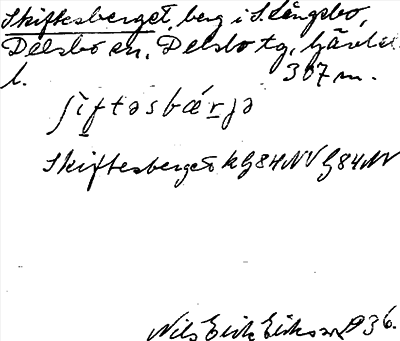 Skiftesberget, berg i S. Långsbo,
Delsbo sn, Delsbo tg, Gävleb.
l. 307 m.
ʃìftəsbæ̀rjə
Skiftesberget kG84NV G84NV
Nils Erik Eriksson 1936.